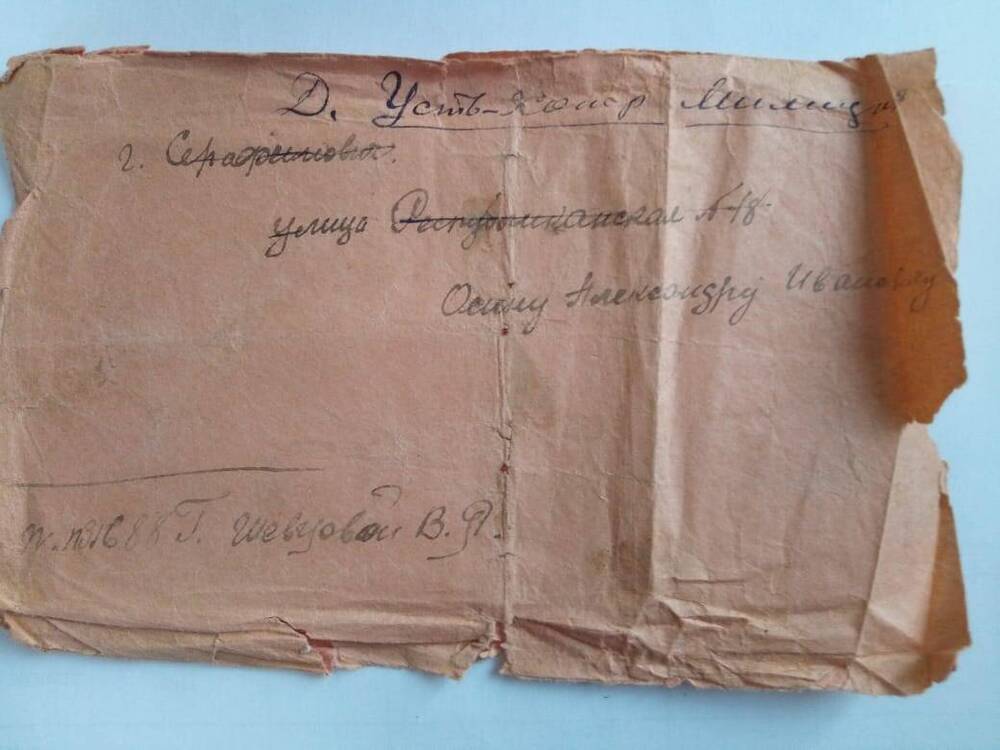 Д. Усть-Хопер Милиция
г. Серафимович.
улица Республиканская №18
Осину Александру Ивановичу
Г. Шевцовой В.